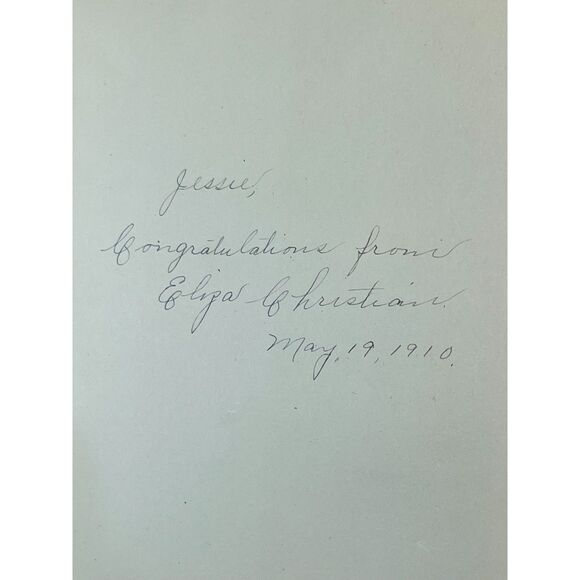 Jessie,
Congratulations from
Eliza Christian.
May, 19, 1910.